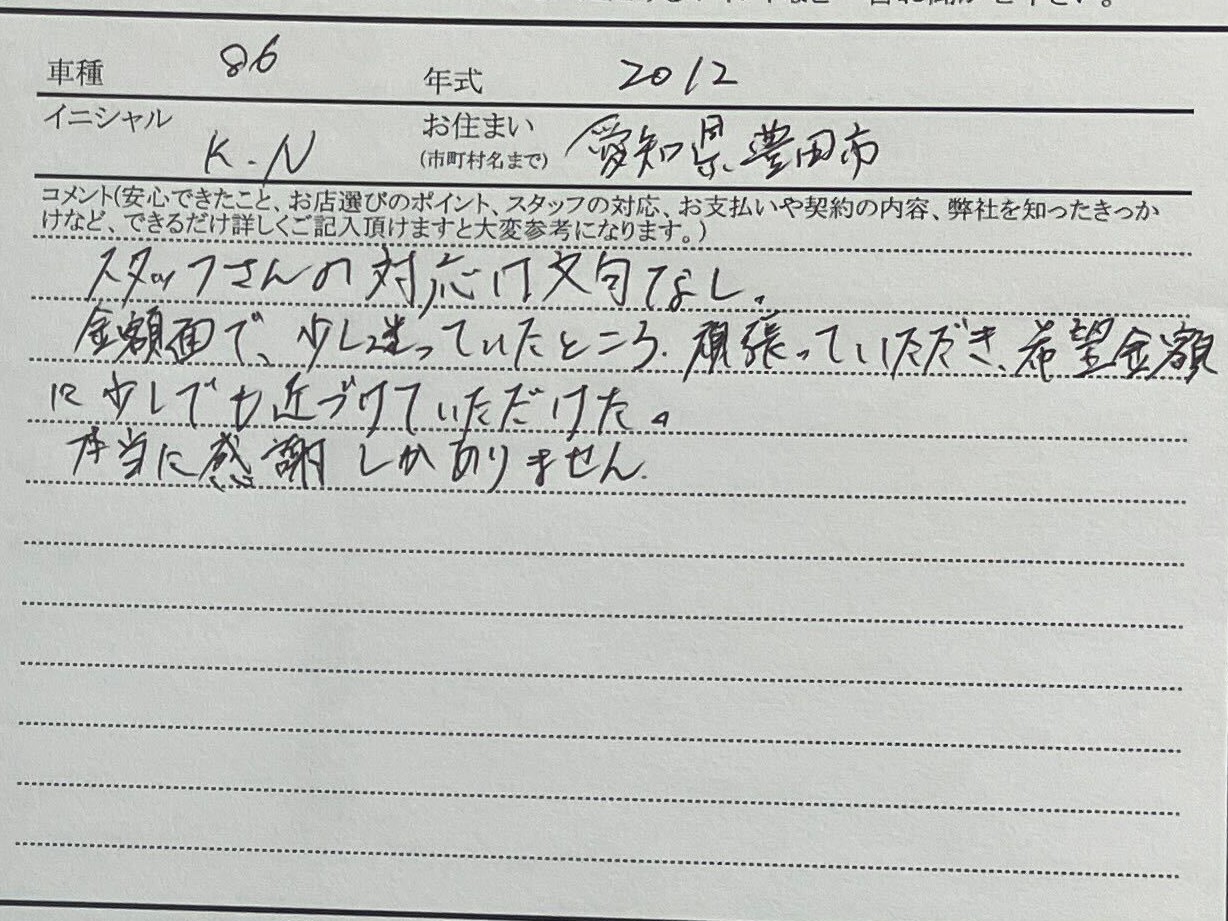 車種 86 年式 2012
イニシャル K.N お住まい(市町村名まで) 愛知県豊田市
コメント(安心できたこと、お店選びのポイント、スタッフの対応、お支払いや契約の内容、弊社を知ったきっか
けなど、できるだけ詳しくご記入頂けますと大変参考になります。)
スタッフさんの対応は文句なし。
金額面で、少し迷っていたところ、頑張っていただき、希望金額
に少しでも近づけていただけた。
本当に感謝しかありません。